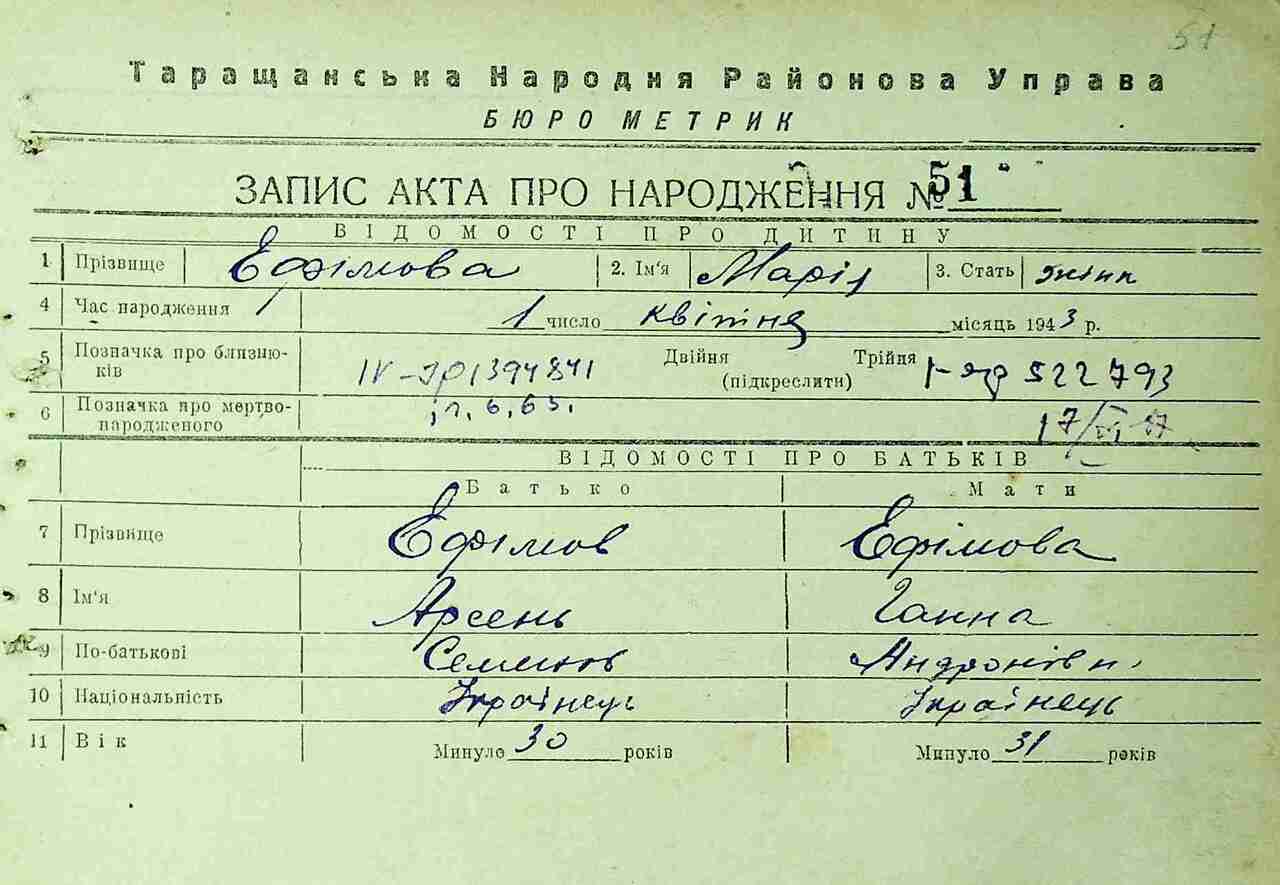 51
Таращанська Народня Районова Управа
БЮРО МЕТРИК
ЗАПИС АКТА ПРО НАРОДЖЕННЯ № 51
ВІДОМОСТІ ПРО ДИТИНУ
1 Прізвище Ефімова 2. Ім'я Марія 3. Стать жінк
4 Час народження 1 число квітня місяць 1943 р.
5 Позначка про близню-ків IV-ЯР 1394841 Двійня Трійня (підкреслити) 522793
6 Позначка про мертво-народженого 11.6.65.
ВІДОМОСТІ ПРО БАТЬКІВ
Батько Мати
7 Прізвище Ефімов Ефімова
8 Ім'я Арсень Ганна
9 По-батькові Семенов Андронівн.
10 Національність Українець Українець
11 Вік Минуло 30 років Минуло 31 років